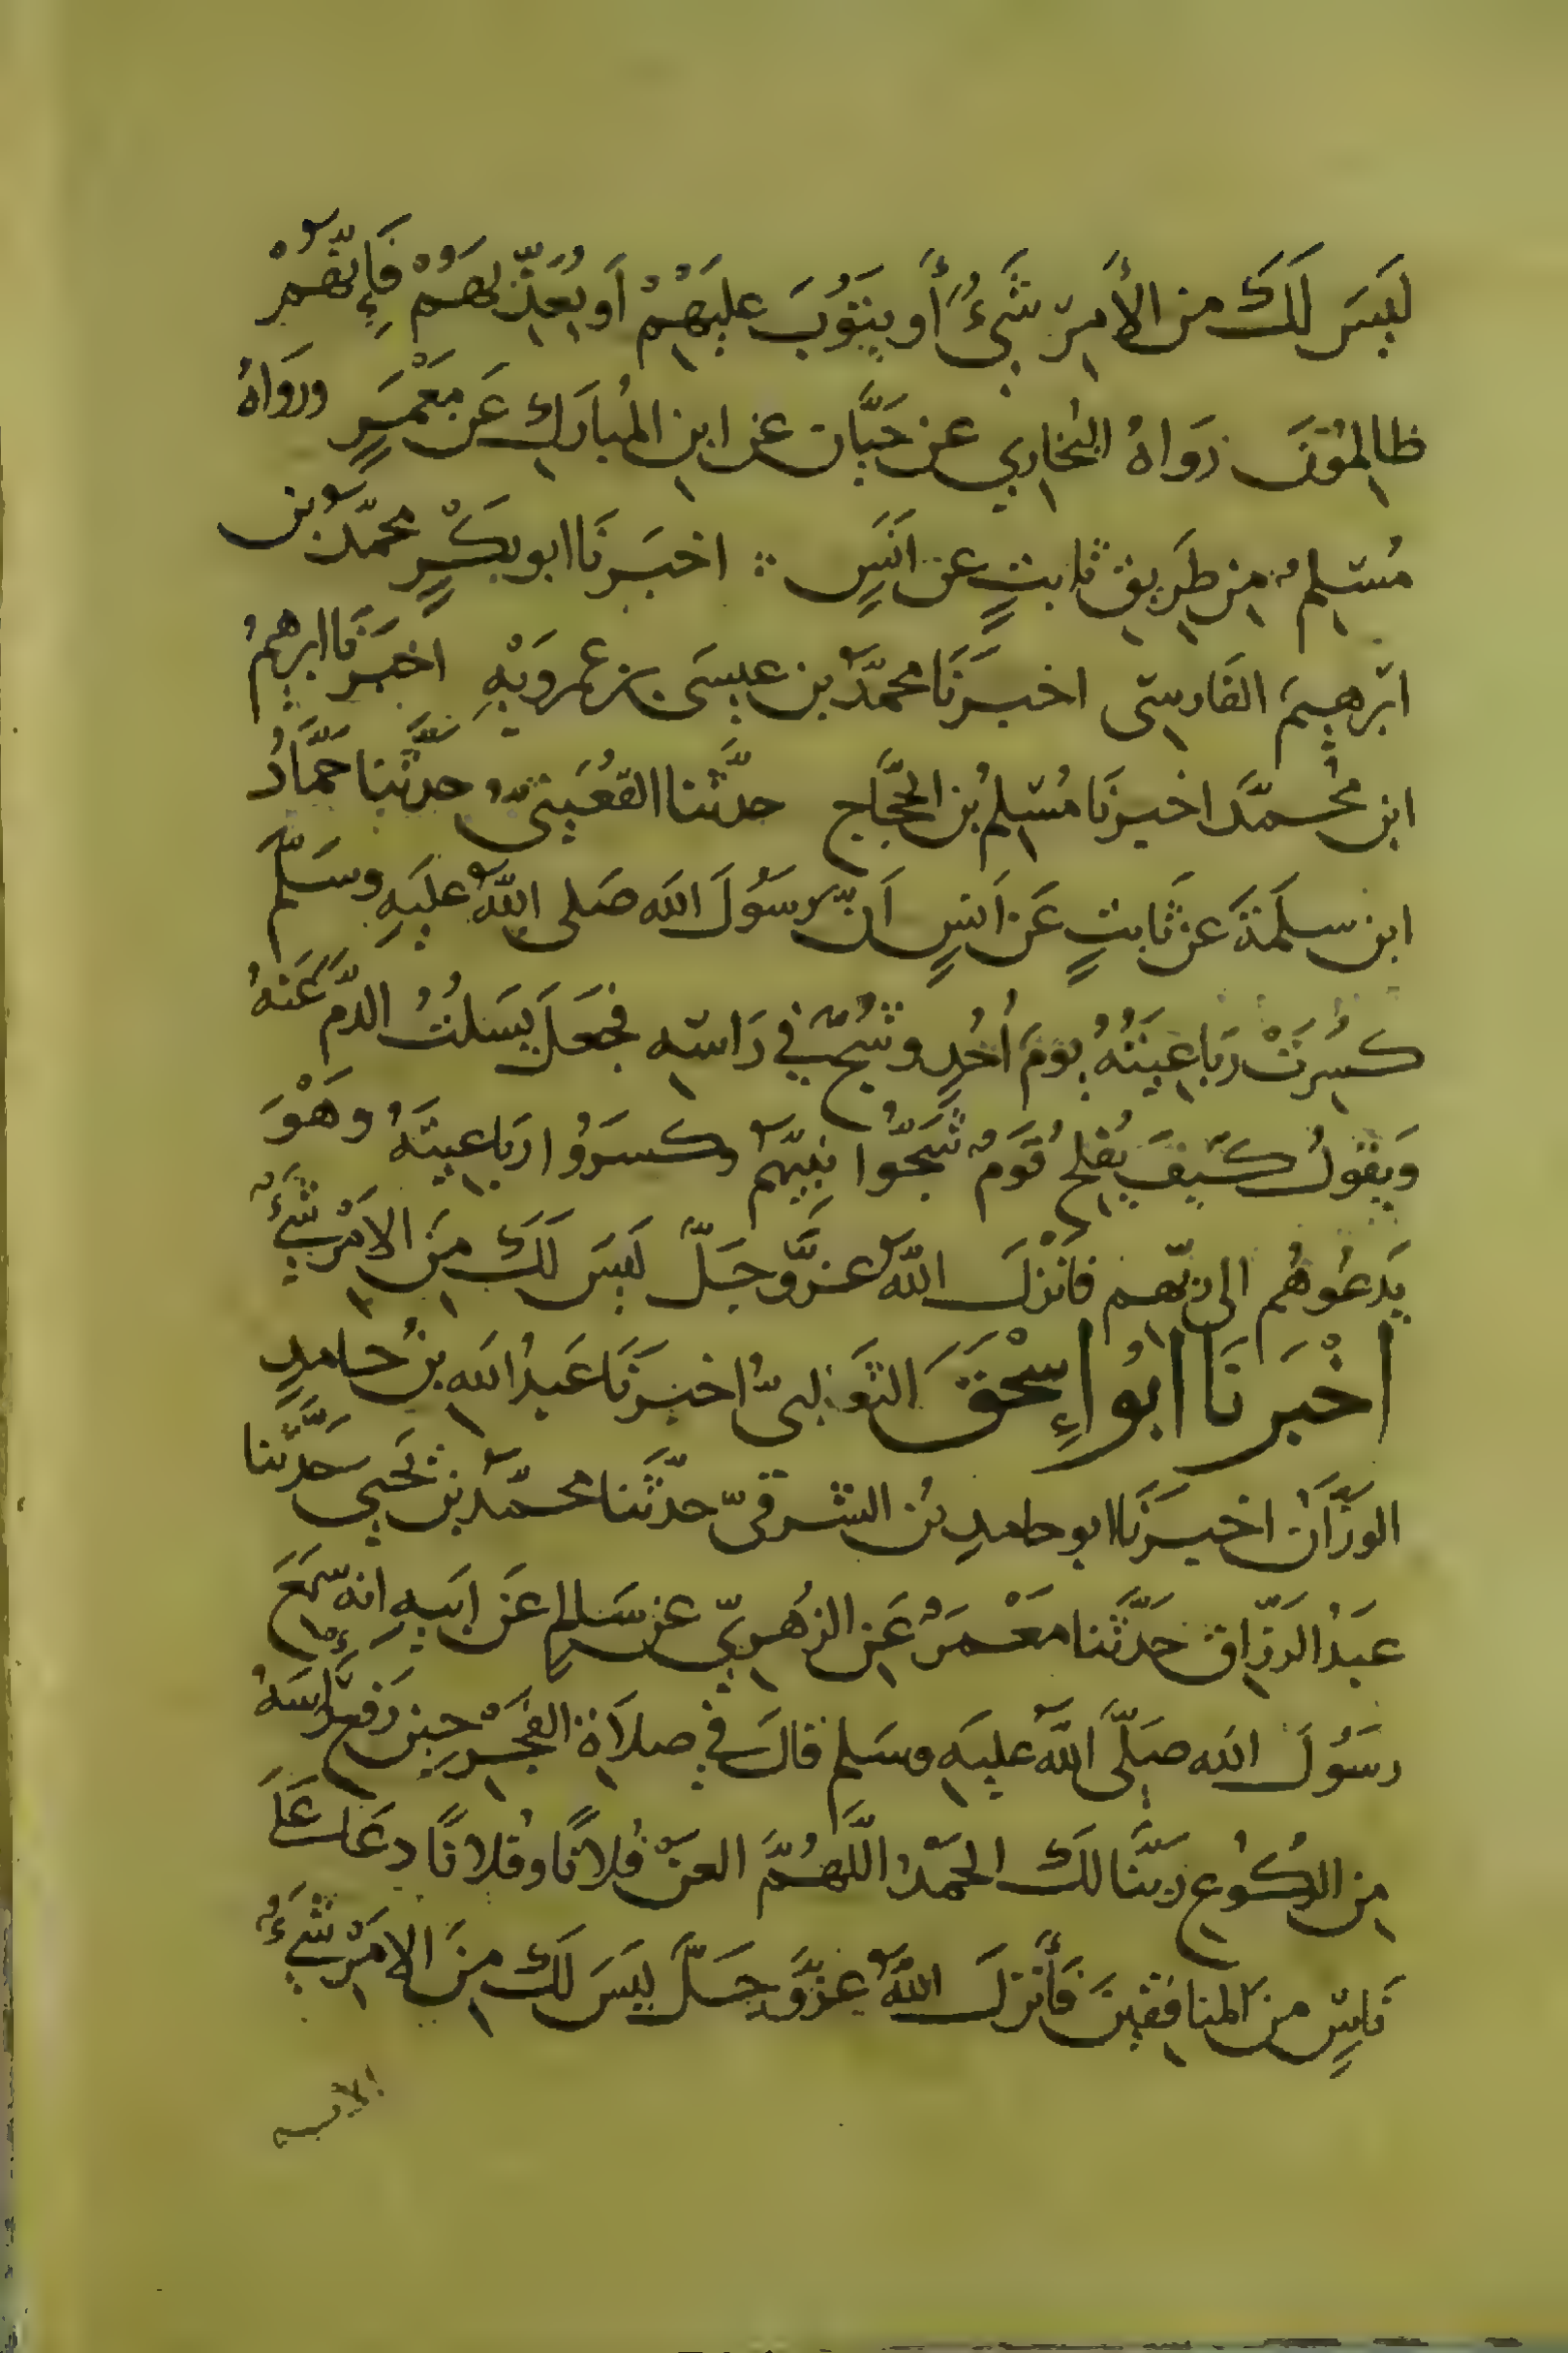 لَيسَ لَكَ من الأَمرِ شَيءٌ أَو يَتوُبَ عليهِمْ اَو يُعَذِّبَهُمْ فَإِنّهُمْ
ظالموُنَ رَوَاهُ البُخاري عن حَبَّان عن ابن المُبارَكِ عَن مَعْمَرٍ ورَوَاهُ
مُسلِمٌ من طَرِيق ثابتٍ عن اَنَسٍ ∴ اخبَرنَا ابو بَكْرٍ محمّدُ بن
ابرهِيمَ الفَارسِي اخبَرنَا محمّدُ بن عيسَى بن عمرَويْهِ اخبَرنَا ابرهيمُ
ابن مُحمَّد اخبرنَا مُسلمُ بن الحجَّاج حدَّثنا القعْنَبيّ حدَّثنا حَمَّادُ
ابن سلَمَةَ عن ثَابتٍ عَن اَنسٍ اَنّ رسوُلَ الله صَلى اللّهُ عليَهِ وسَلّمَ
كسُرِتْ رَبَاعِيَتُهُ يوَمَ اُحُدٍ وشُجَّ في رَاسهِ فجَعَلَ يَسلُتُ الدّمَ عَنهُ
وَيقوُلُ كيَفَ يُفلحُ قَومٌ شَجّوُا نبيّهُم وكسَروُا رَبَاعيتَهُ وَهْوَ
يَدعُوهُم الى ربّهم فانزَلَ اللّهُ عزَّوجَلّ لَيسَ لَكَ مِنَ الامْرِ شَيءٌ
اخْبَرنَا ابوُ إِسْحقَ الثعَلبيّ اخبَرنَا عَبدُ الله بنُ حَامدٍ
الوَزَّانُ اخبَرنَا ابو حامدِ بن الشرقيّ حدَّثنا محمّد بن يحَيى حدَّثنا
عبَدُ الرزّاق حدَّثنا مَعْمَرٌ عَن الزهُريّ عن سَالمٍ عَن ابَيهِ انه سَمِعَ
رسَوُلَ الله صَلّى اللّهُ عليهِ وسَلم قالَ في صلاَةِ الفجْرِ حين رَفعَ رَاسَهُ
من الركوُع ربَّنا لكَ الحمْدُ اللَّهُمَّ العنْ فُلانًا وفُلانًا دعَا عَلَى
نَاسٍ منَ المنافقينَ فَأَنزلَ اللّهُ عزَّوجَلَّ لَيسَ لَكَ مِنَ الامْرِ شَيءٌ
الايه